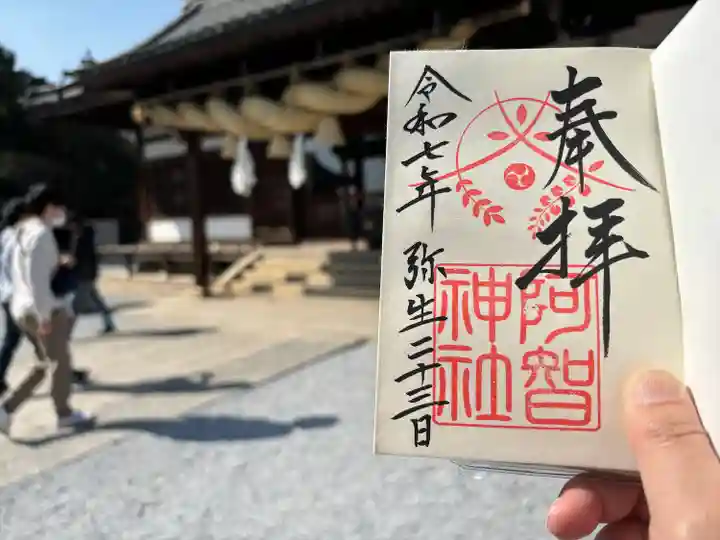 奉拝
阿智
神社
令和七年 弥生二十三日